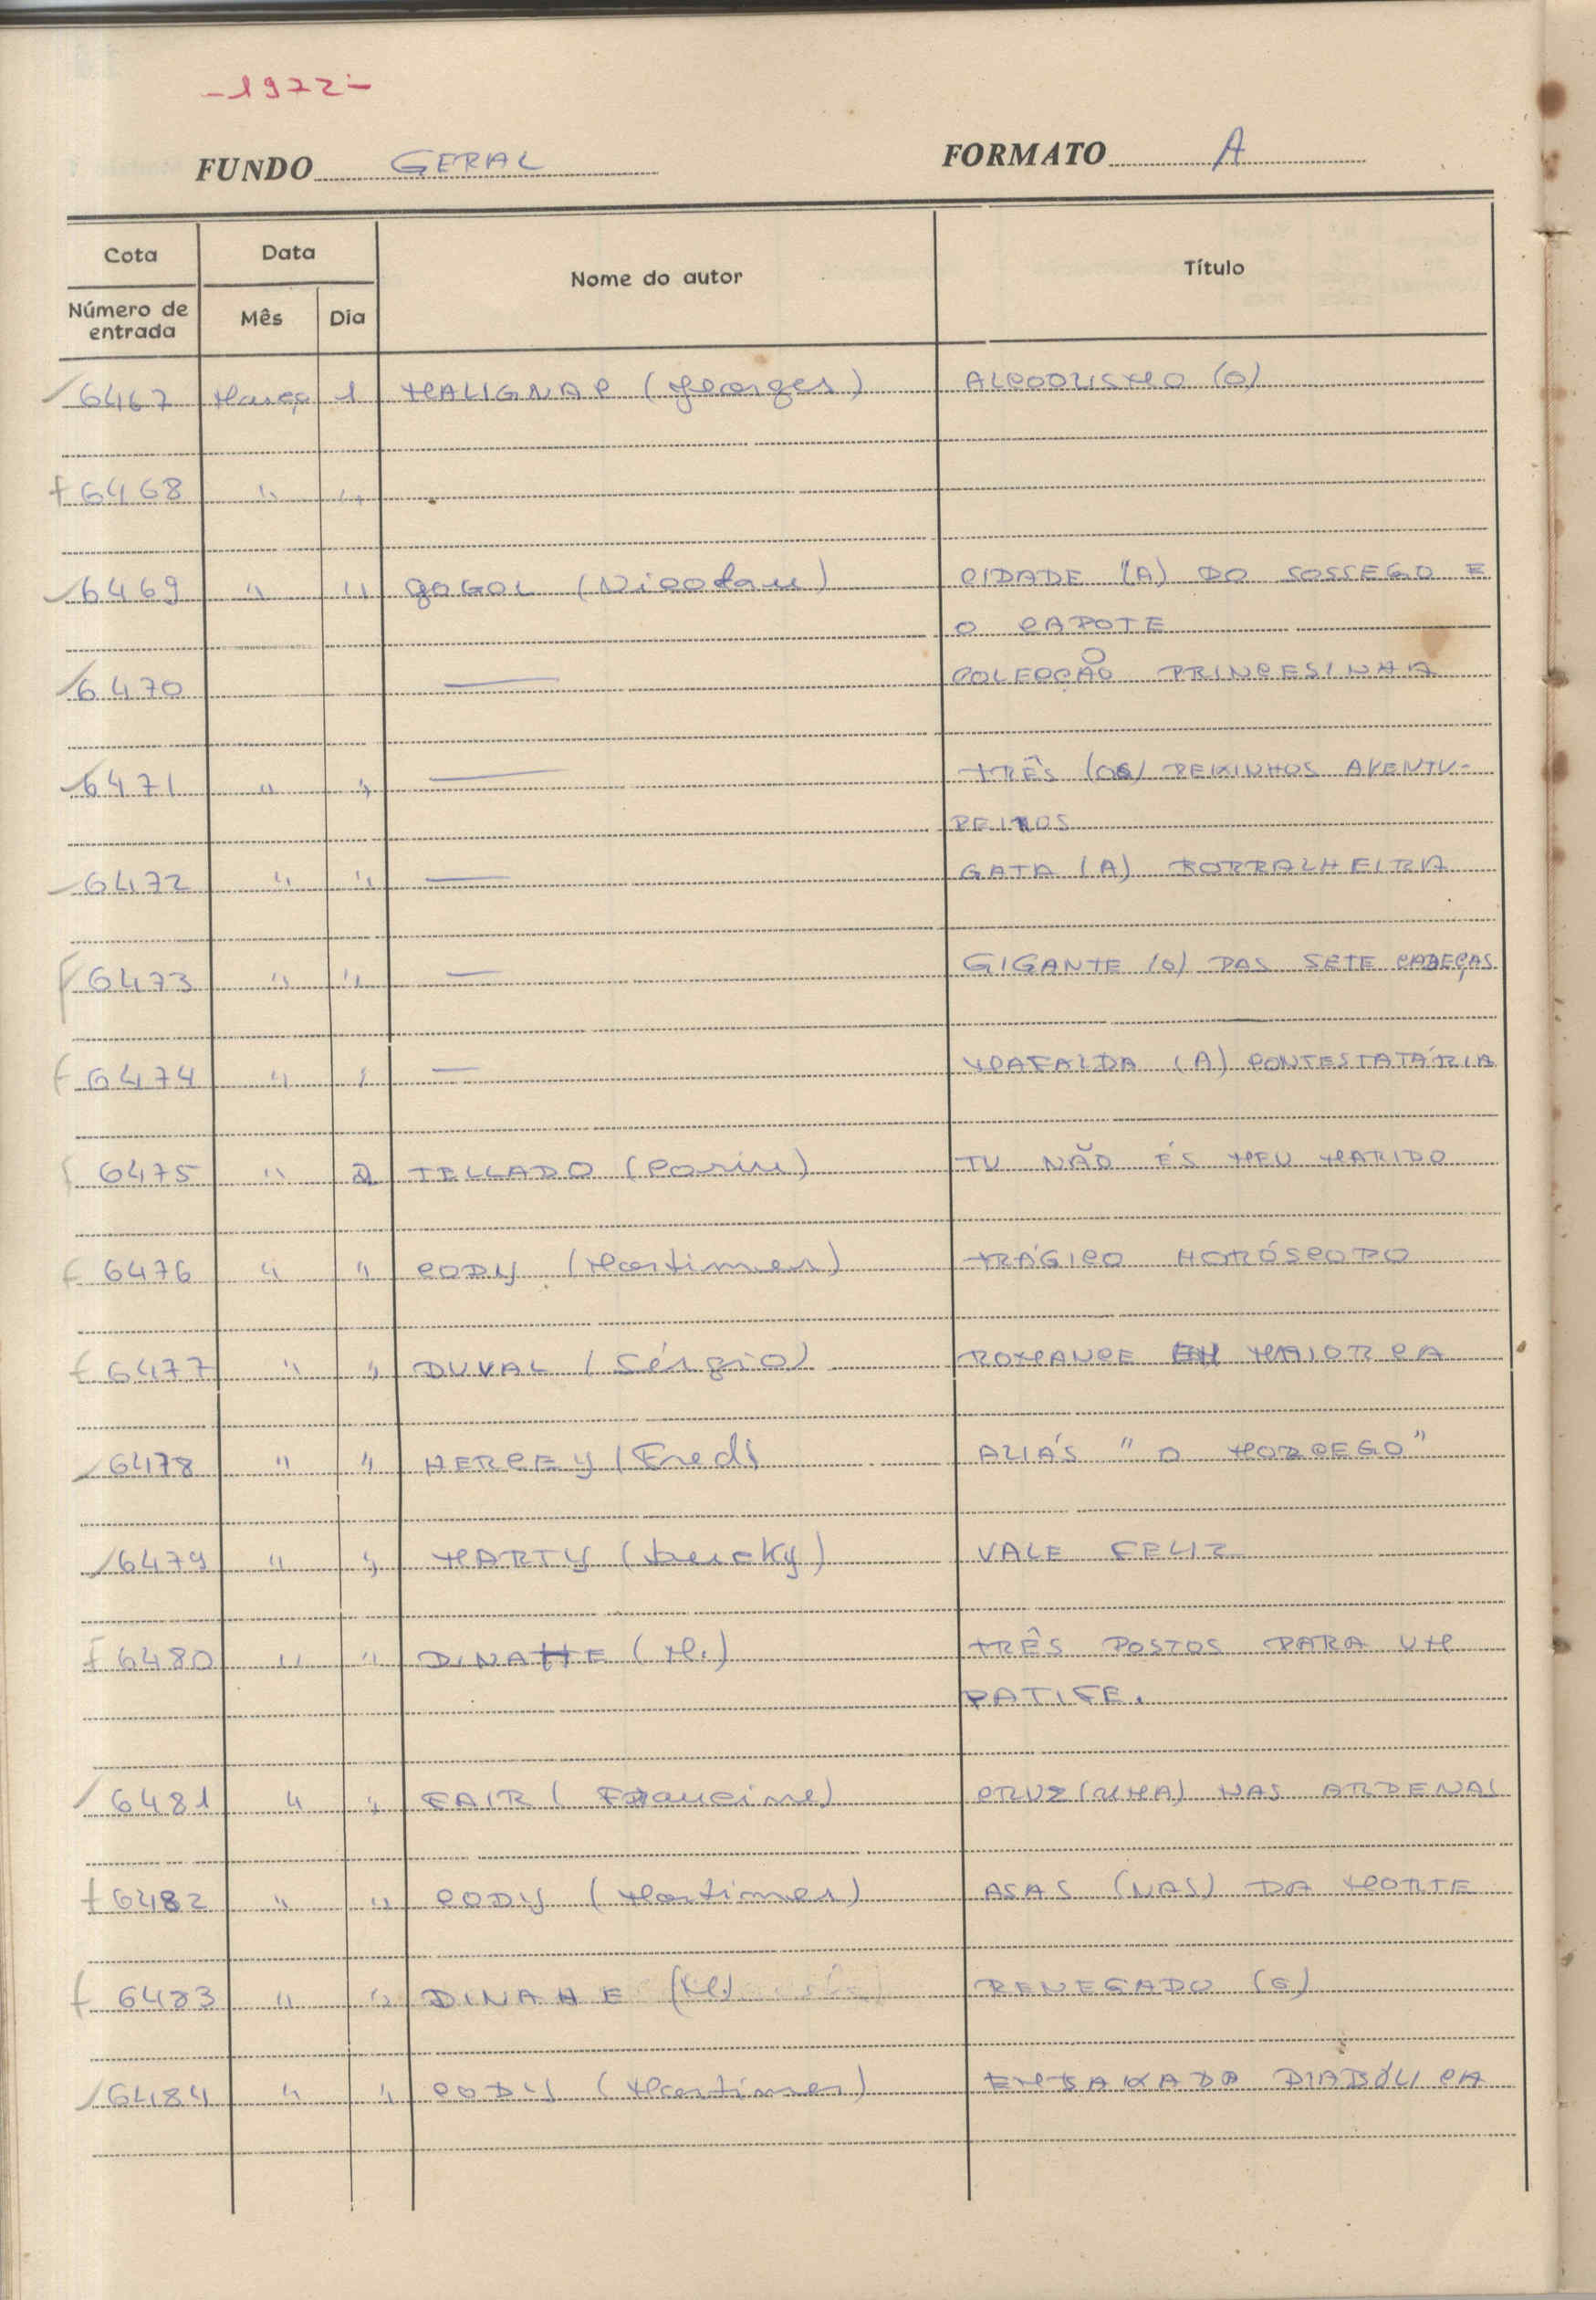 -1972-
FUNDO GERAL FORMATO A
Cota Data Nome do autor Título
Número de entrada Mês Dia
6467 Março 1 MALIGNAC (Georges) ALCOOLISMO (O)
6468 " "
6469 " " GOGOL (Nicolau) CIDADE (A) DO SOSSEGO E
O CAPOTE
6470 — COLECÇÃO PRINCESINHA
6471 " " — TRÊS (OS) PEIXINHOS AVENTU-
REIROS
6472 " " — GATA (A) BORRALHEIRA
6473 " " — GIGANTE (O) DAS SETE CABEÇAS
6474 " " — MAFALDA (A) CONTESTATÁRIA
6475 " 2 TELLADO (Corin) TU NÃO ÉS MEU MARIDO
6476 " " CODY (Mortimer) TRÁGICO HORÓSCOPO
6477 " " DUVAL (Sérgio) ROMANCE EM MAIORCA
6478 " " HERCEY (Fred) ALIÁS "O MORCEGO"
6479 " " MARTY (Lucky) VALE FELIZ
6480 " " DINAHE (M.) TRÊS POSTOS PARA UM
PATIFE.
6481 " " FAIR (Francine) CRUZ (UMA) NAS ARDENAS
6482 " " CODY (Mortimer) ASAS (NAS) DA MORTE
6483 " " DINAHE (M.) RENEGADO (O)
6484 " " CODY (Mortimer) EMBAIXADA DIABÓLICA